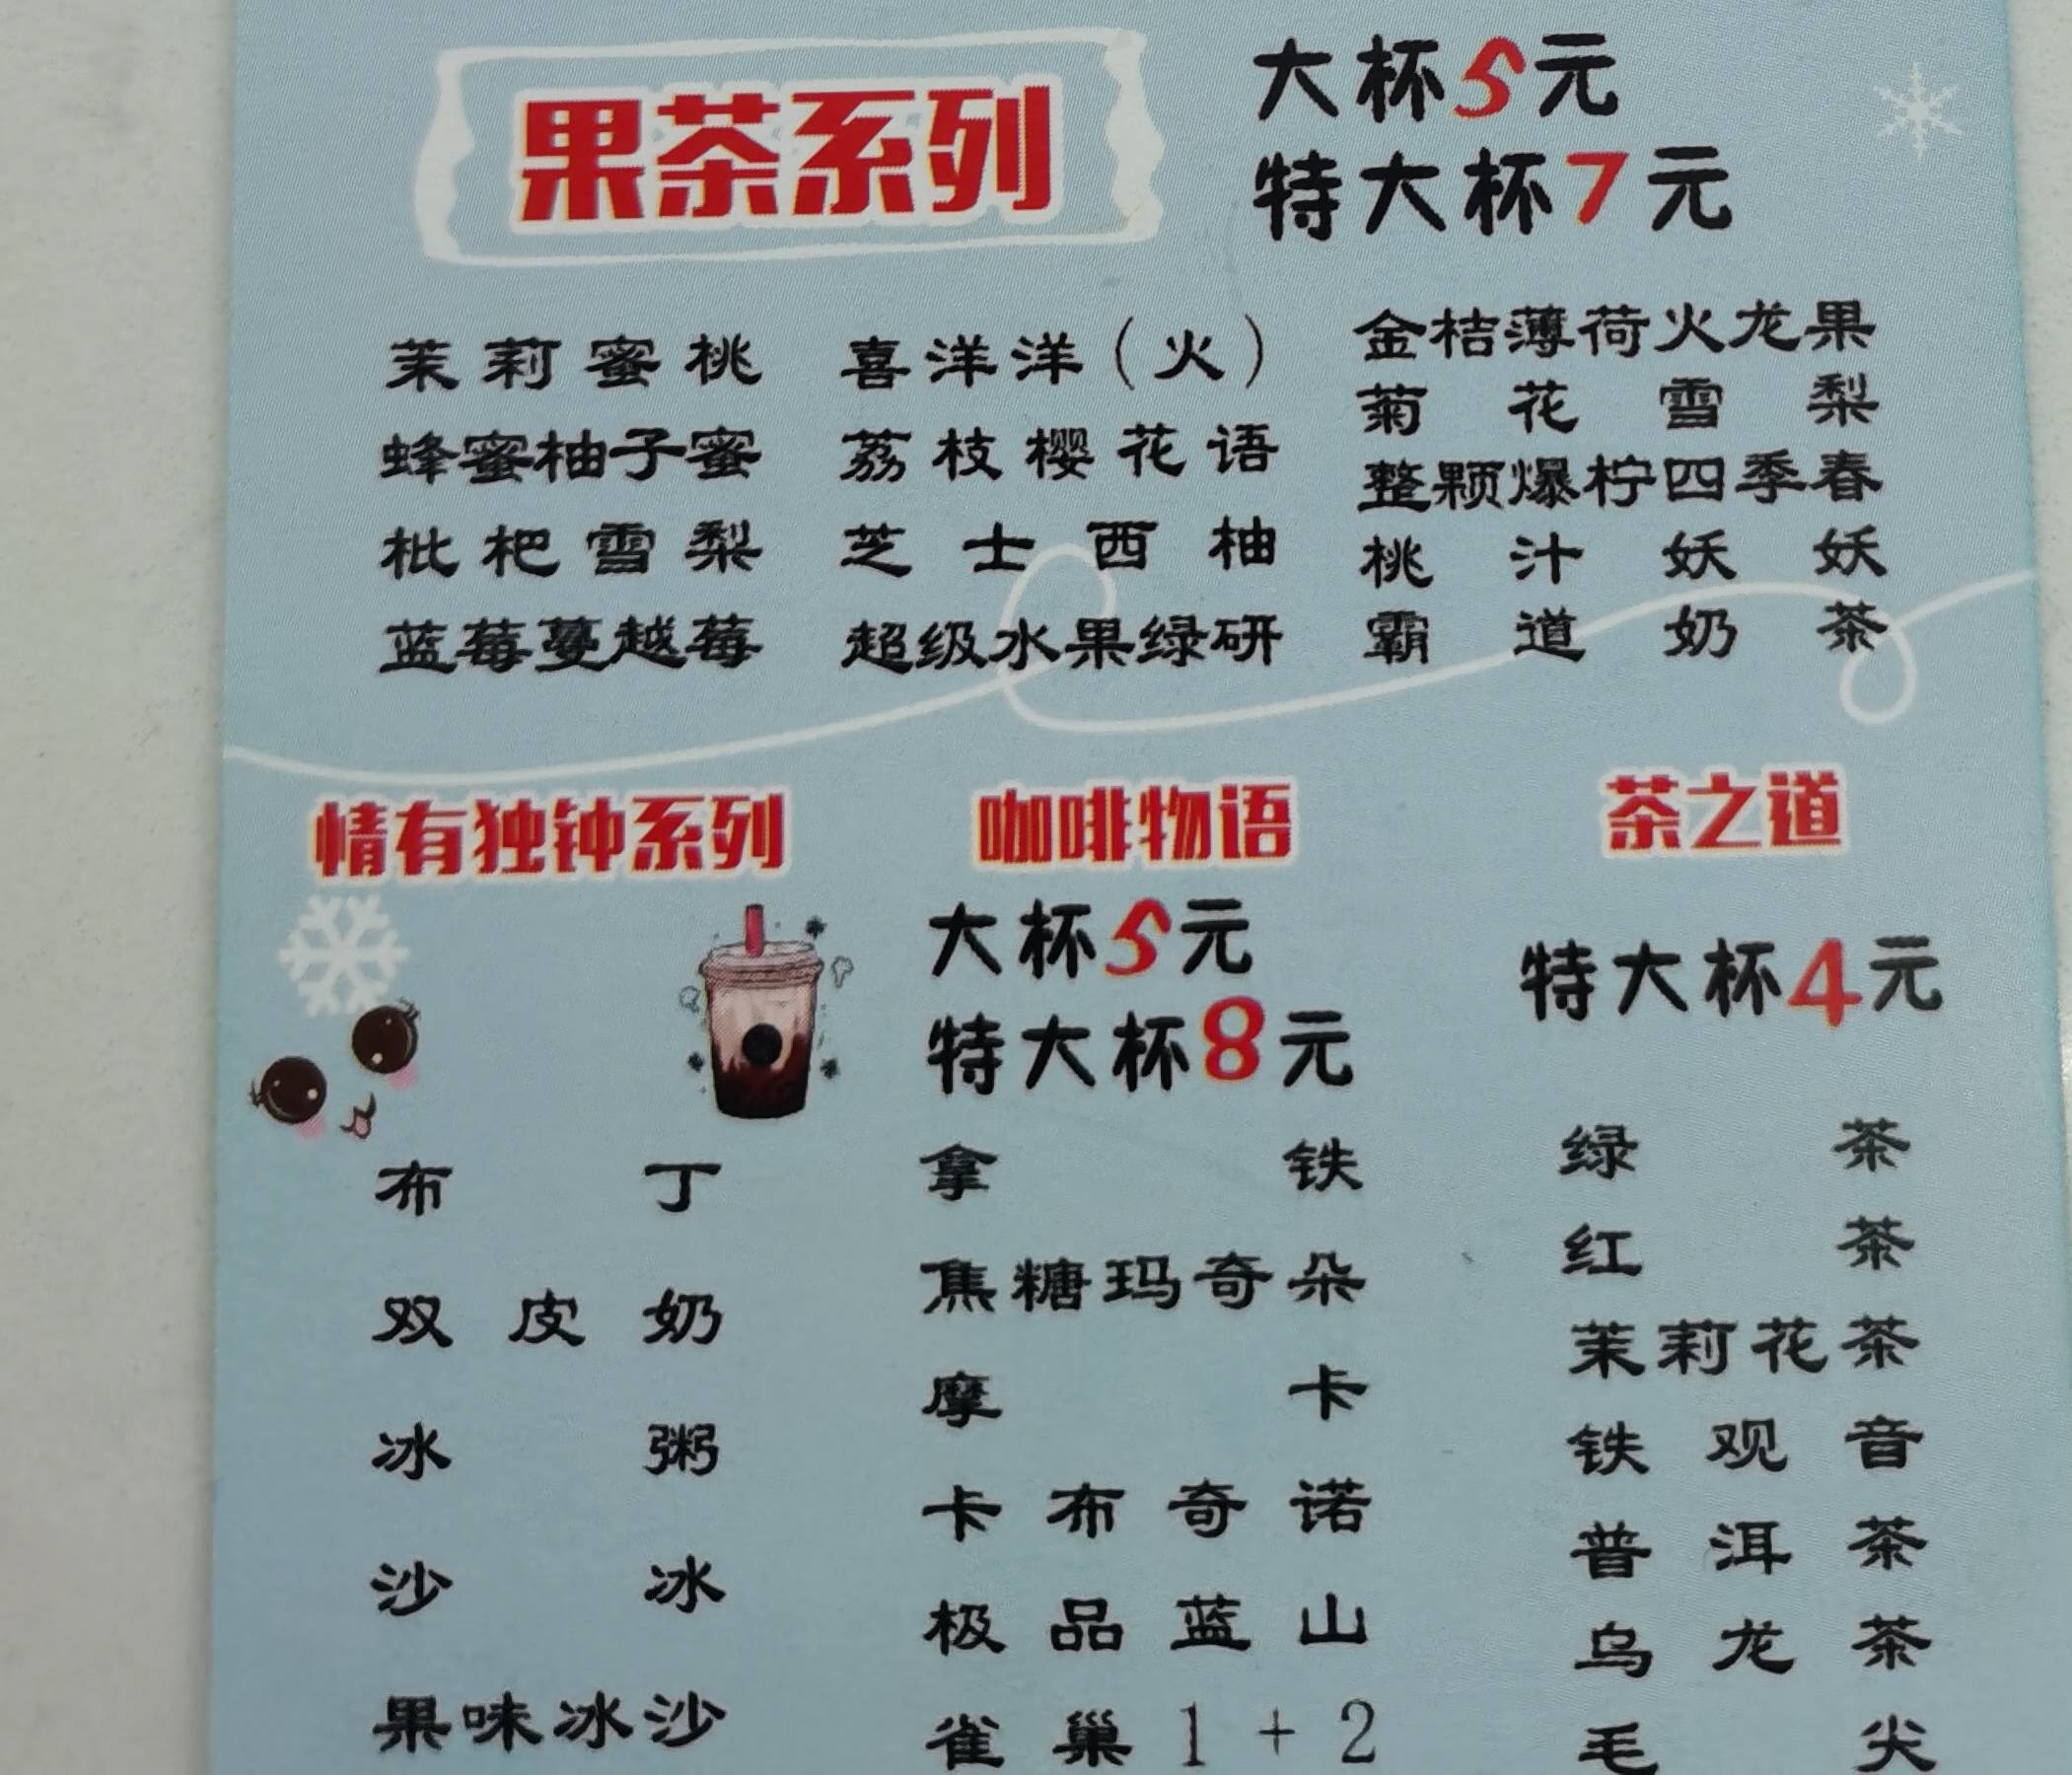 果茶系列
大杯5元
特大杯7元
茉莉蜜桃
蜂蜜柚子蜜
枇杷雪梨
蓝莓蔓越莓
喜洋洋(火)
荔枝樱花语
芝士西柚
超级水果绿研
金桔薄荷火龙果
菊花雪梨
整颗爆柠四季春
桃汁妖妖
霸道奶茶
情有独钟系列
布丁
双皮奶
冰粥
沙冰
果味冰沙
咖啡物语
大杯5元
特大杯8元
拿铁
焦糖玛奇朵
摩卡
卡布奇诺
极品蓝山
雀巢1+2
茶之道
特大杯4元
绿茶
红茶
茉莉花茶
铁观音
普洱茶
乌龙茶
毛尖